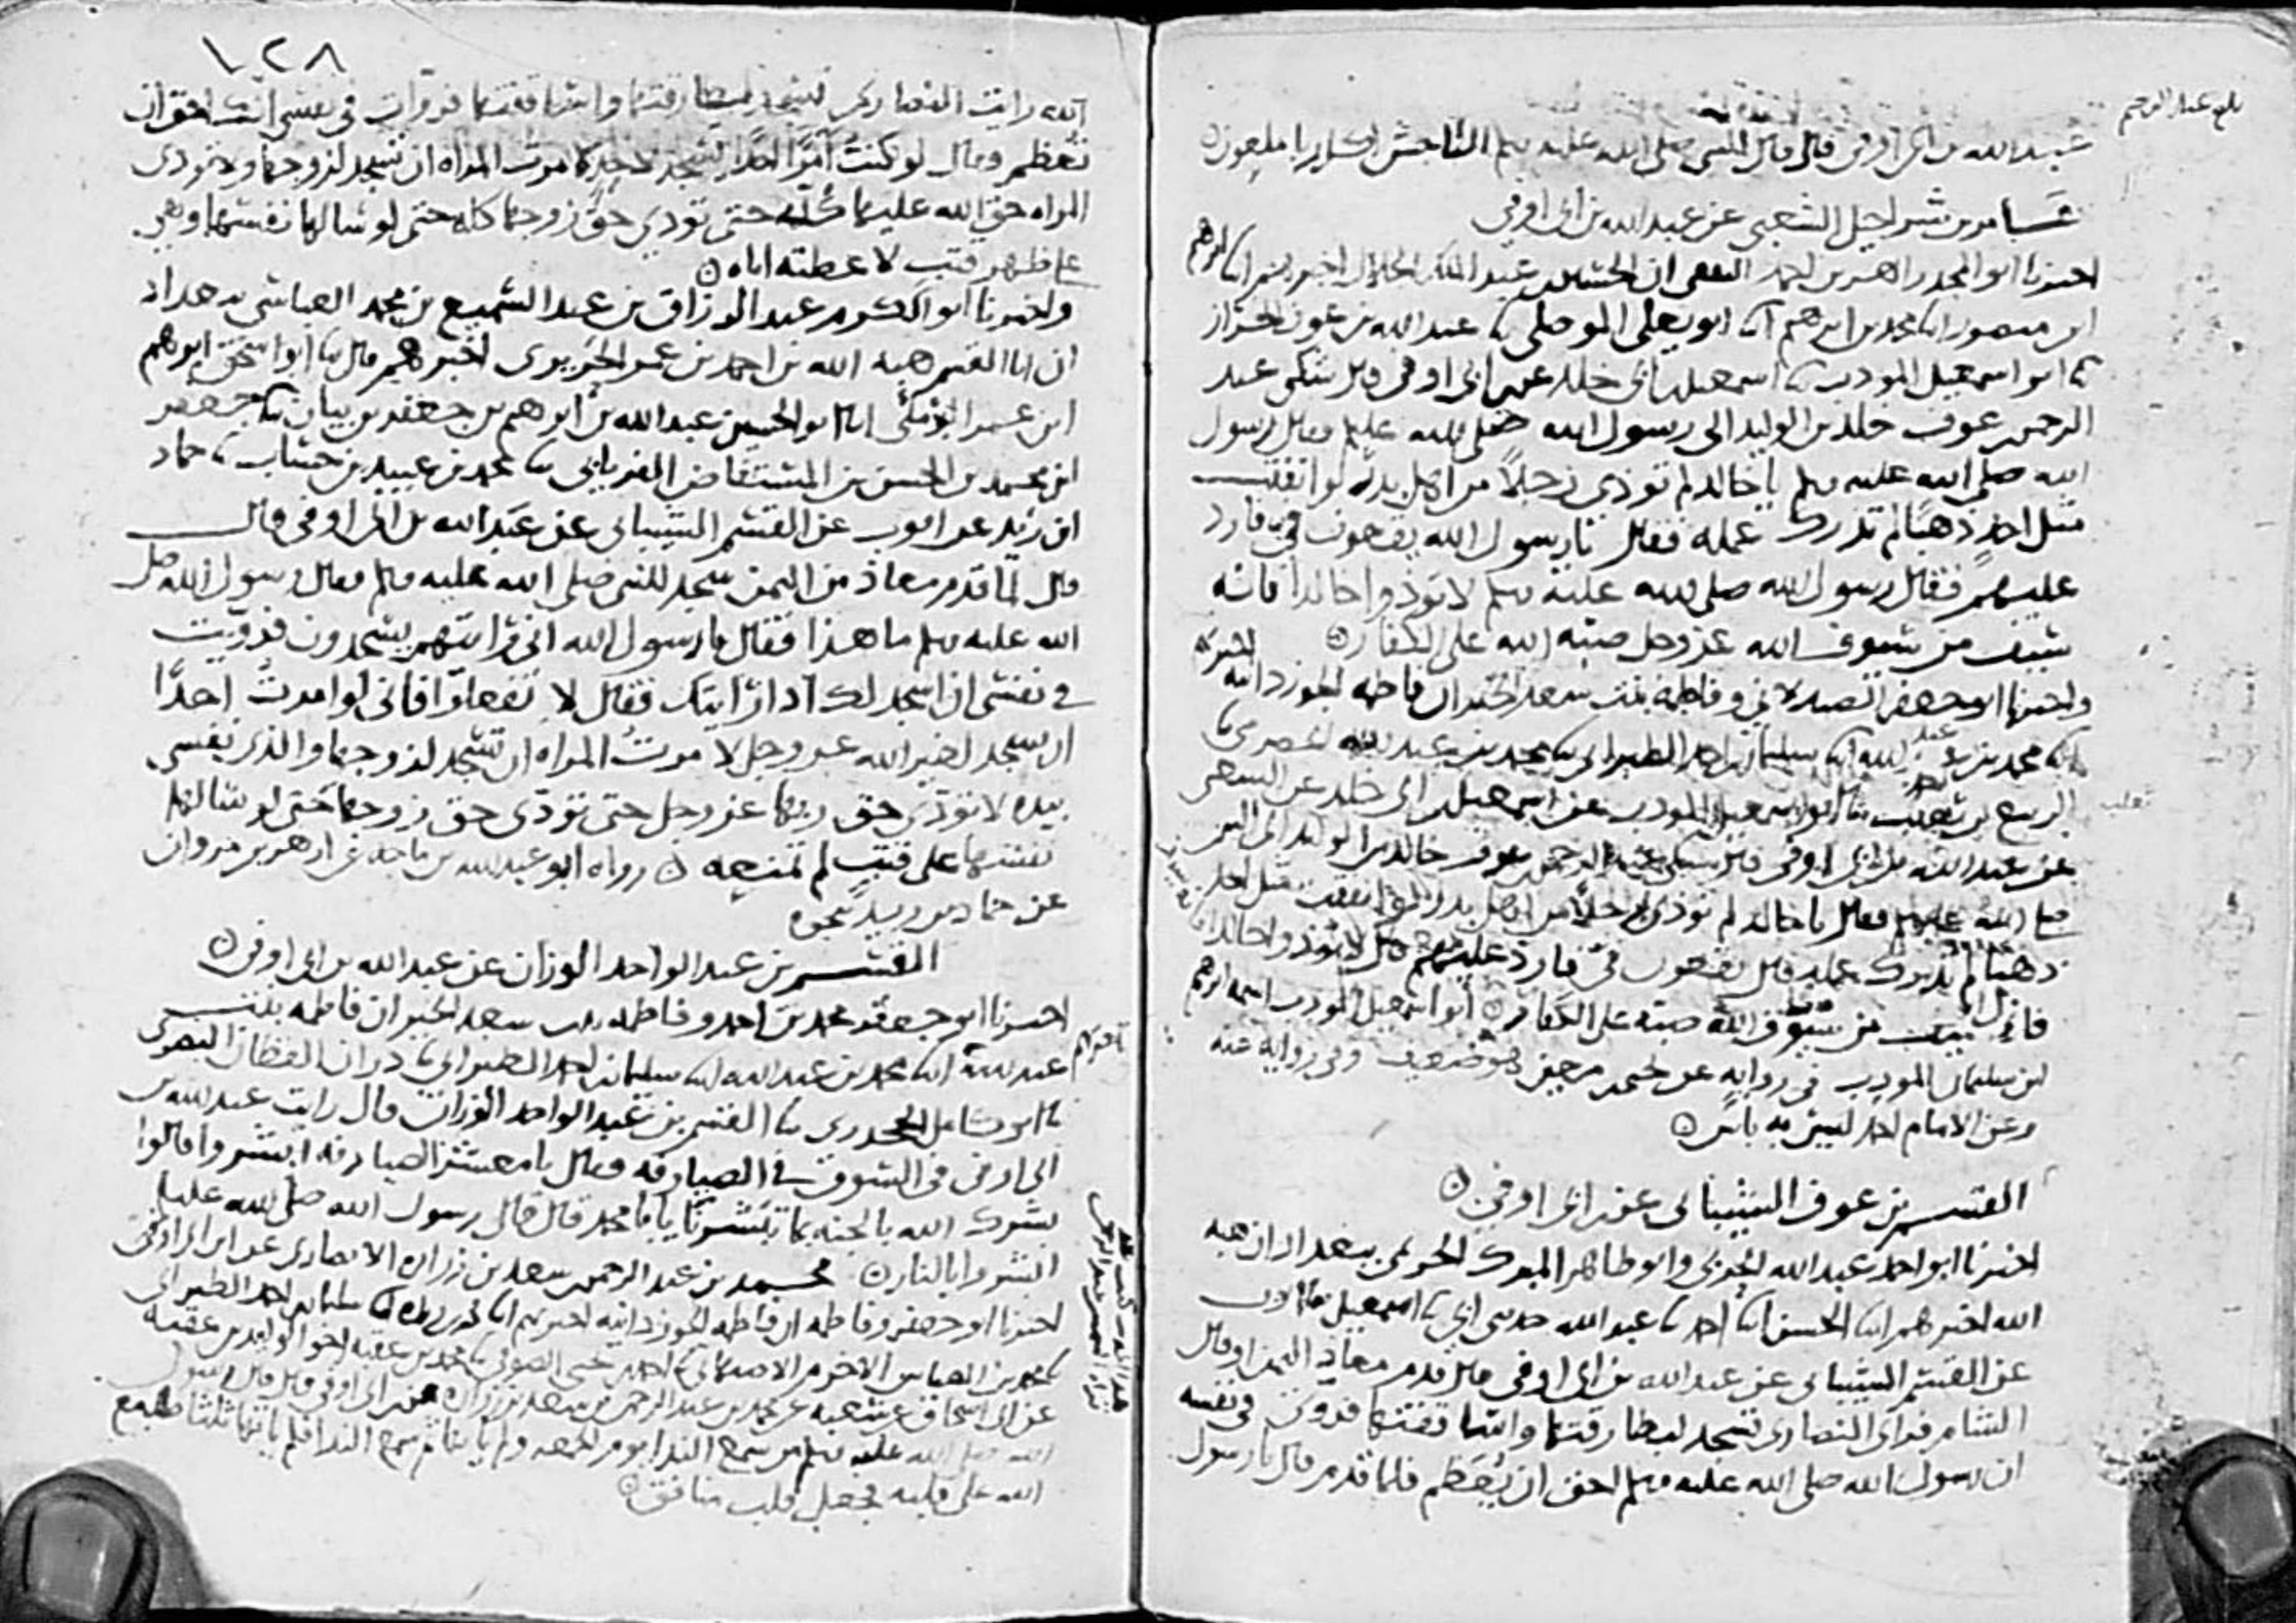 بلغ عبد الرحيم
عبد الله بن ابي اوفى قال قال النبي صلى الله عليه وسلم الناجش اكل ربا ملعون
عامر بن شراحيل الشعبي عن عبد الله بن ابي اوفى
اخبرنا ابو المجد زاهر بن احمد الثقفي ان الحسين بن عبد الملك الخلال اخبرهم ابنا ابرهيم
ابن منصور ابنا محمد بن ابرهيم ابنا ابو يعلى الموصلي ثنا عبد الله بن عون الخراز
ثنا ابو اسمعيل المودب ثنا اسمعيل بن ابي خلد عن ابن ابي اوفى قال شكى عبد
الرحمن بن عوف خلد بن الوليد الى رسول الله صلى الله عليه وسلم فقال رسول
الله صلى الله عليه وسلم يا خالد لم توذي رجلا من اهل بدر لو انفقت
مثل احد ذهبا لم تدرك عمله فقال يا رسول الله يقعون في فارد
عليهم فقال رسول الله صلى الله عليه وسلم لا توذوا خالدا فانه
سيف من سيوف الله عز وجل صبه الله على الكفار
واخبرنا ابو جعفر الصيدلاني وفاطمة بنت سعد الخير ان فاطمه الجوزدانيه اخبرتهم
ابنا محمد بن عبد الله ابنا سليمان بن احمد الطبراني ثنا محمد بن عبد الله الحضرمي ثنا
الربيع بن ثعلب ثنا ابو اسمعيل المودب عن اسمعيل بن ابي خلد عن الشعبي
عن عبد الله بن ابي اوفى قال شكى عبد الرحمن بن عوف خالد بن الوليد الى النبي
صلى الله عليه وسلم فقال يا خالد لم توذي رجلا من اهل بدر لو انفقت مثل احد
ذهبا لم تدرك عمله قال يقعون في فارد عليهم قال لا توذوا خالدا
فانه سيف من سيوف الله صبه على الكفار ابو اسمعيل المودب اسمه ابرهيم
ابن سليمان المودب في روايه عن يحيى بن معين هو ضعيف وفي روايه عنه
وعن الامام احمد ليس به باس
القسم بن عوف الشيباني عن ابن ابي اوفى
اخبرنا ابو احمد عبد الله الحربي وابو طاهر المبرك الحريمي ببغداد ان هبه
الله اخبرهم ابنا الحسن ابنا احمد ثنا عبد الله حدثني ابي ثنا اسمعيل ثنا ايوب
عن القسم الشيباني عن عبد الله بن ابي اوفى قال قدم معاذ اليمن او قال
الشام فراى النصارى تسجد لبطارقتها واساقفتها فروى في نفسه
ان رسول الله صلى الله عليه وسلم احق ان يعظم فلما قدم قال يا رسول
١٢٨
الله رايت النصارى تسجد لبطارقتها واساقفتها فروات في نفسي انك احق ان
تعظم وقال لو كنت آمرا احدا يسجد لاحد لامرت المراه ان تسجد لزوجها ولا تودي
المراه حق الله عليها كله حتى تودي حق زوجها كله حتى لو سالها نفسها وهي
على ظهر قتب لا عطته اياه
واخبرنا ابو الكرم عبد الرزاق بن عبد السميع بن محمد العباسي ببغداد
ان ابا القسم هبه الله بن احمد بن عمر الحريري اخبرهم قال ثنا ابو اسحق ابرهيم
ابن عمر البرمكي ابنا ابو الحسين عبد الله بن ابرهيم بن جعفر بن بيان ثنا جعفر
ابن محمد بن الحسن بن المستفاض الفريابي ثنا محمد بن عبيد بن حساب ثنا حماد
ابن زيد عن ايوب عن القسم الشيباني عن عبد الله بن ابي اوفى قال
قال لما قدم معاذ من اليمن سجد للنبي صلى الله عليه وسلم فقال رسول الله صلى
الله عليه وسلم ما هذا فقال يا رسول الله اني رايتهم يسجدون فرويت
في نفسي ان اسجد لك اذا رايتك فقال لا تفعلوا فاني لو امرت احدا
ان يسجد لغير الله عز وجل لامرت المراه ان تسجد لزوجها والذي نفسي
بيده لا تودي حق ربها عز وجل حتى تودي حق زوجها حتى لو سالها
نفسها على قتب لم تمنعه رواه ابو عبد الله بن ماجه عن ازهر بن مروان
عن حماد بن زيد بنحوه
القسم بن عبد الواحد الوزان عن عبد الله بن ابي اوفى
اخبرنا ابو جعفر محمد بن احمد وفاطمه بنت سعد الخير ان فاطمه بنت
عبد الله ابنا محمد بن عبد الله ابنا سليمان بن احمد الطبراني ثنا دران القطان البصري
ثنا ابو كامل الجحدري ثنا القسم بن عبد الواحد الوزان قال رايت عبد الله بن
ابي اوفى في السوق في الصيارفه فقال يا معشر الصيارفه ابشروا قالوا
بشرك الله بالجنه بما تبشرنا يا با محمد قال قال رسول الله صلى الله عليه
ابشروا بالنار محمد بن عبد الرحمن بن سعد بن زراره الانصاري عن ابن ابي اوفى
اخبرنا ابو جعفر وفاطمه ان فاطمه الجوزدانيه اخبرتهم ابنا سليمان بن احمد الطبراني
ثنا محمد بن العباس الاخرم الاصبهاني ثنا احمد بن يحيى الصوفي ثنا محمد بن عقبه اخو الوليد بن عقبه
عن ابي اسحاق عن شعبه عن محمد بن عبد الرحمن بن سعد بن زراره عن ابن ابي اوفى قال قال رسول
الله صلى الله عليه وسلم من سمع الندا يوم الجمعه ولم ياتها ثم سمع الندا فلم ياتها ثلثا طبع
الله على قلبه فجعل قلب منافق